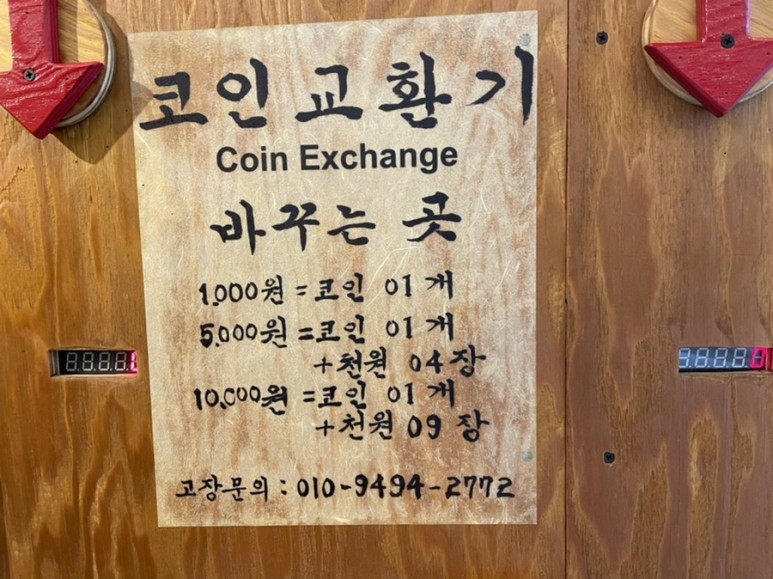 코인교환기
Coin Exchange
바꾸는 곳
1,000원 = 코인 01 개
5,000원 = 코인 01 개
+천원 04 장
10,000원 = 코인 01 개
+천원 09 장
고장문의 : 010-9494-2772